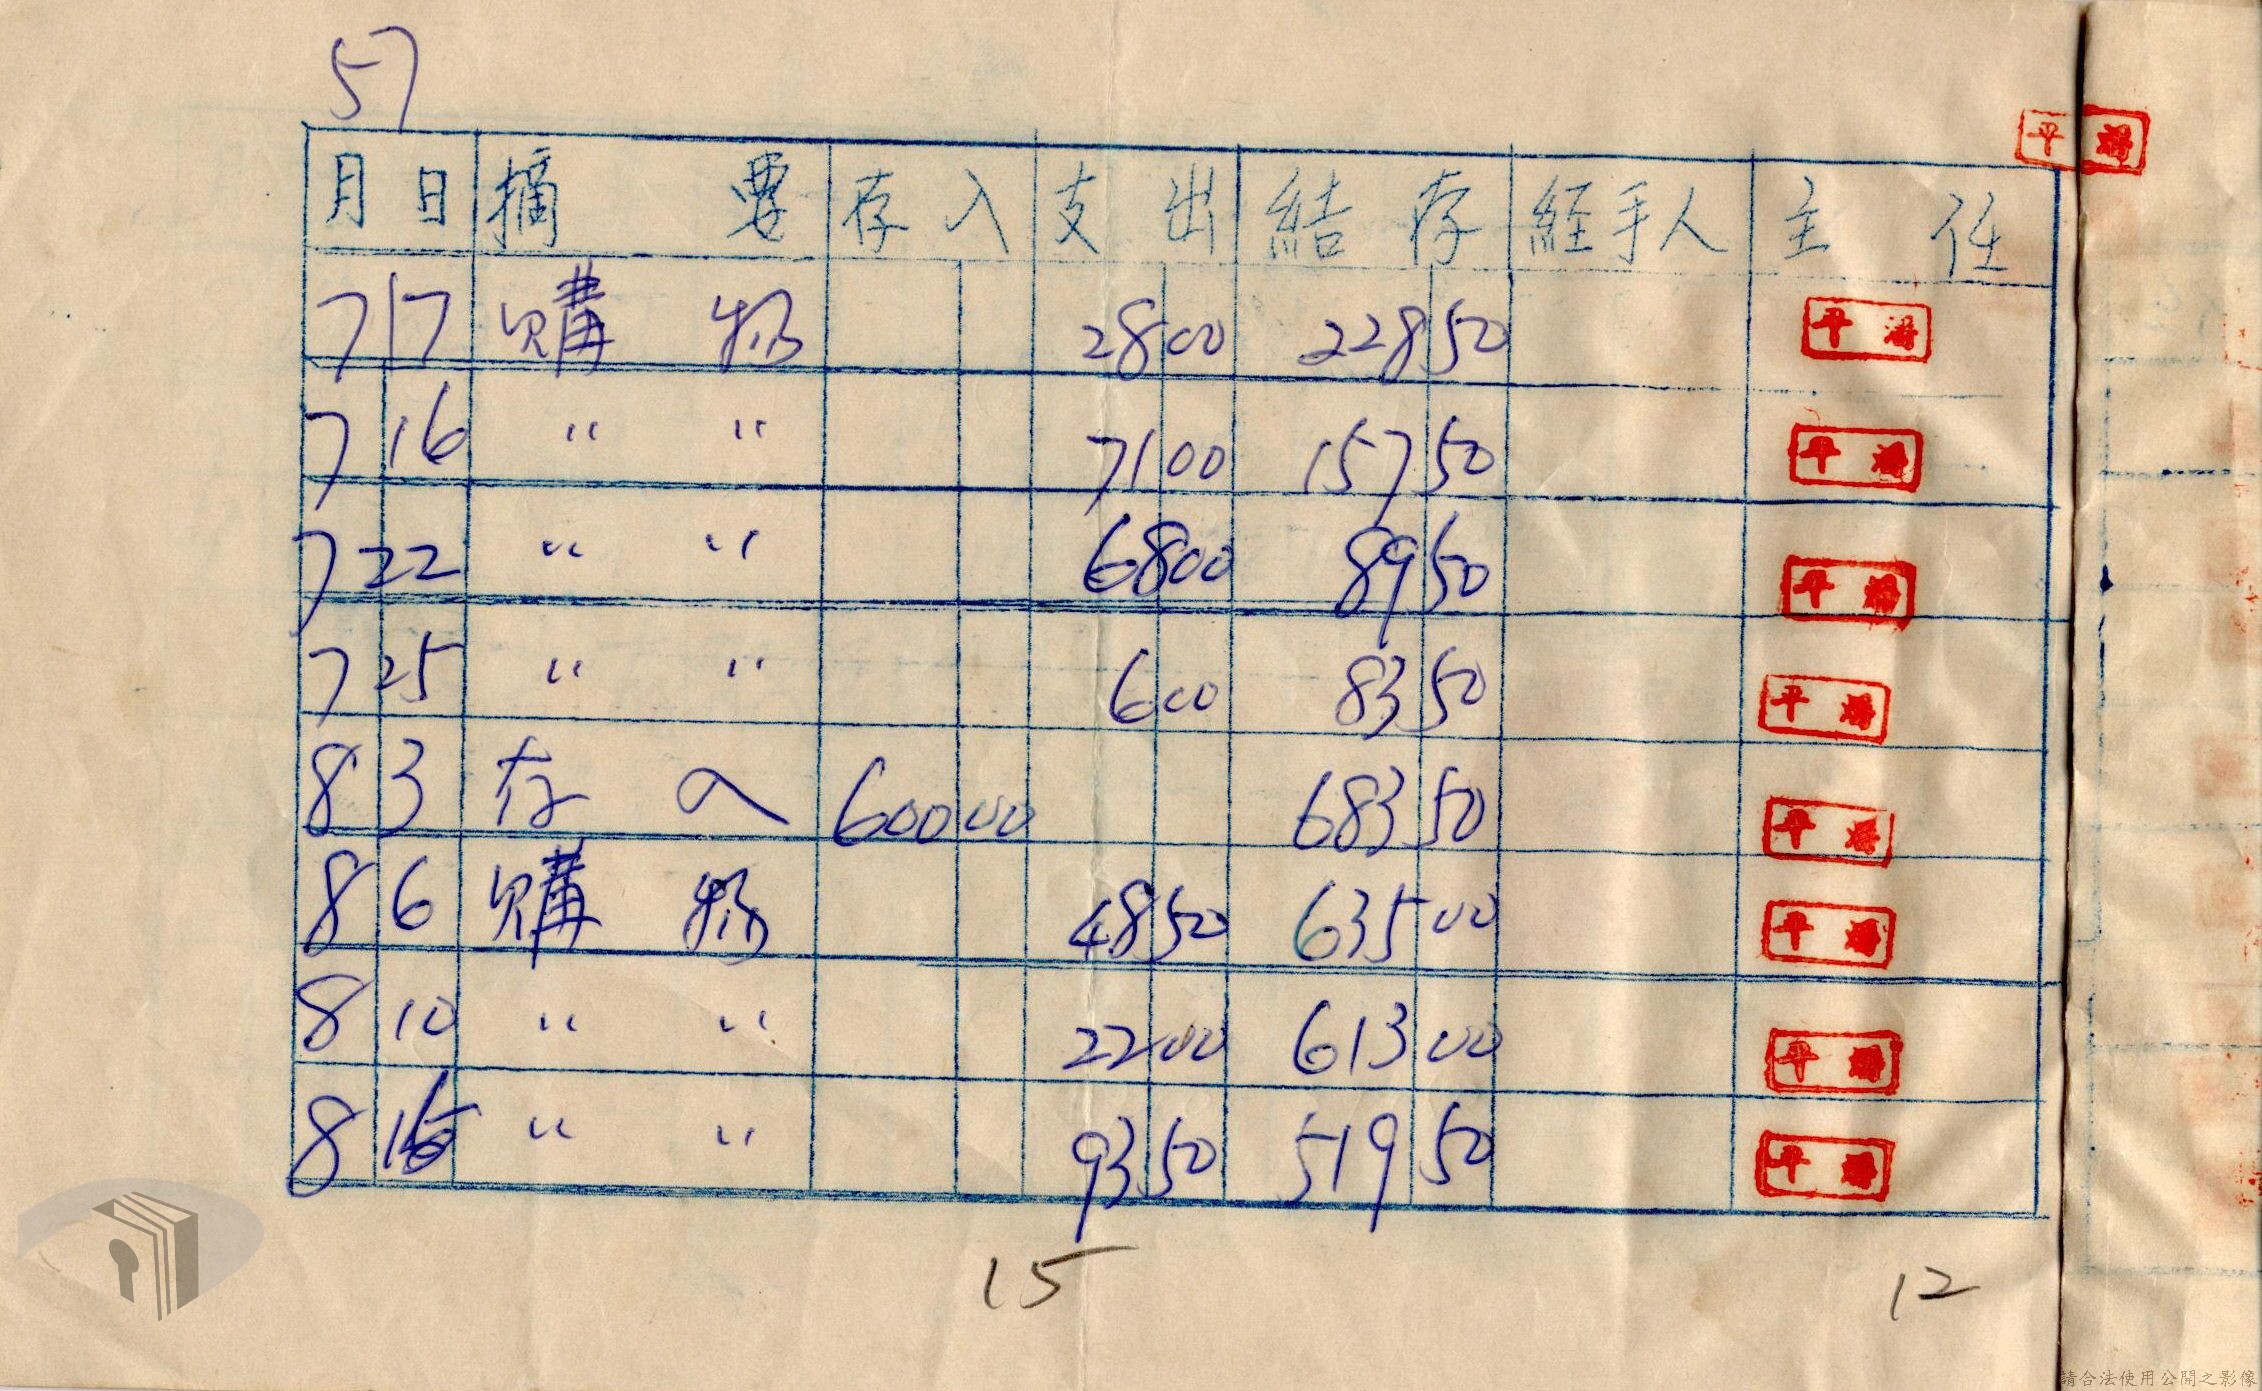 57
月 日 摘 要 存 入 支 出 結 存 經手人 主 任
7 17 購 物 28 00 228 50
7 16 〃 〃 71 00 157 50
7 22 〃 〃 68 00 89 50
7 25 〃 〃 6 00 83 50
8 3 存 入 600 00 683 50
8 6 購 物 48 50 635 00
8 10 〃 〃 22 00 613 00
8 〃 〃 93 50 519 50
15 12
請合法使用公開之影像